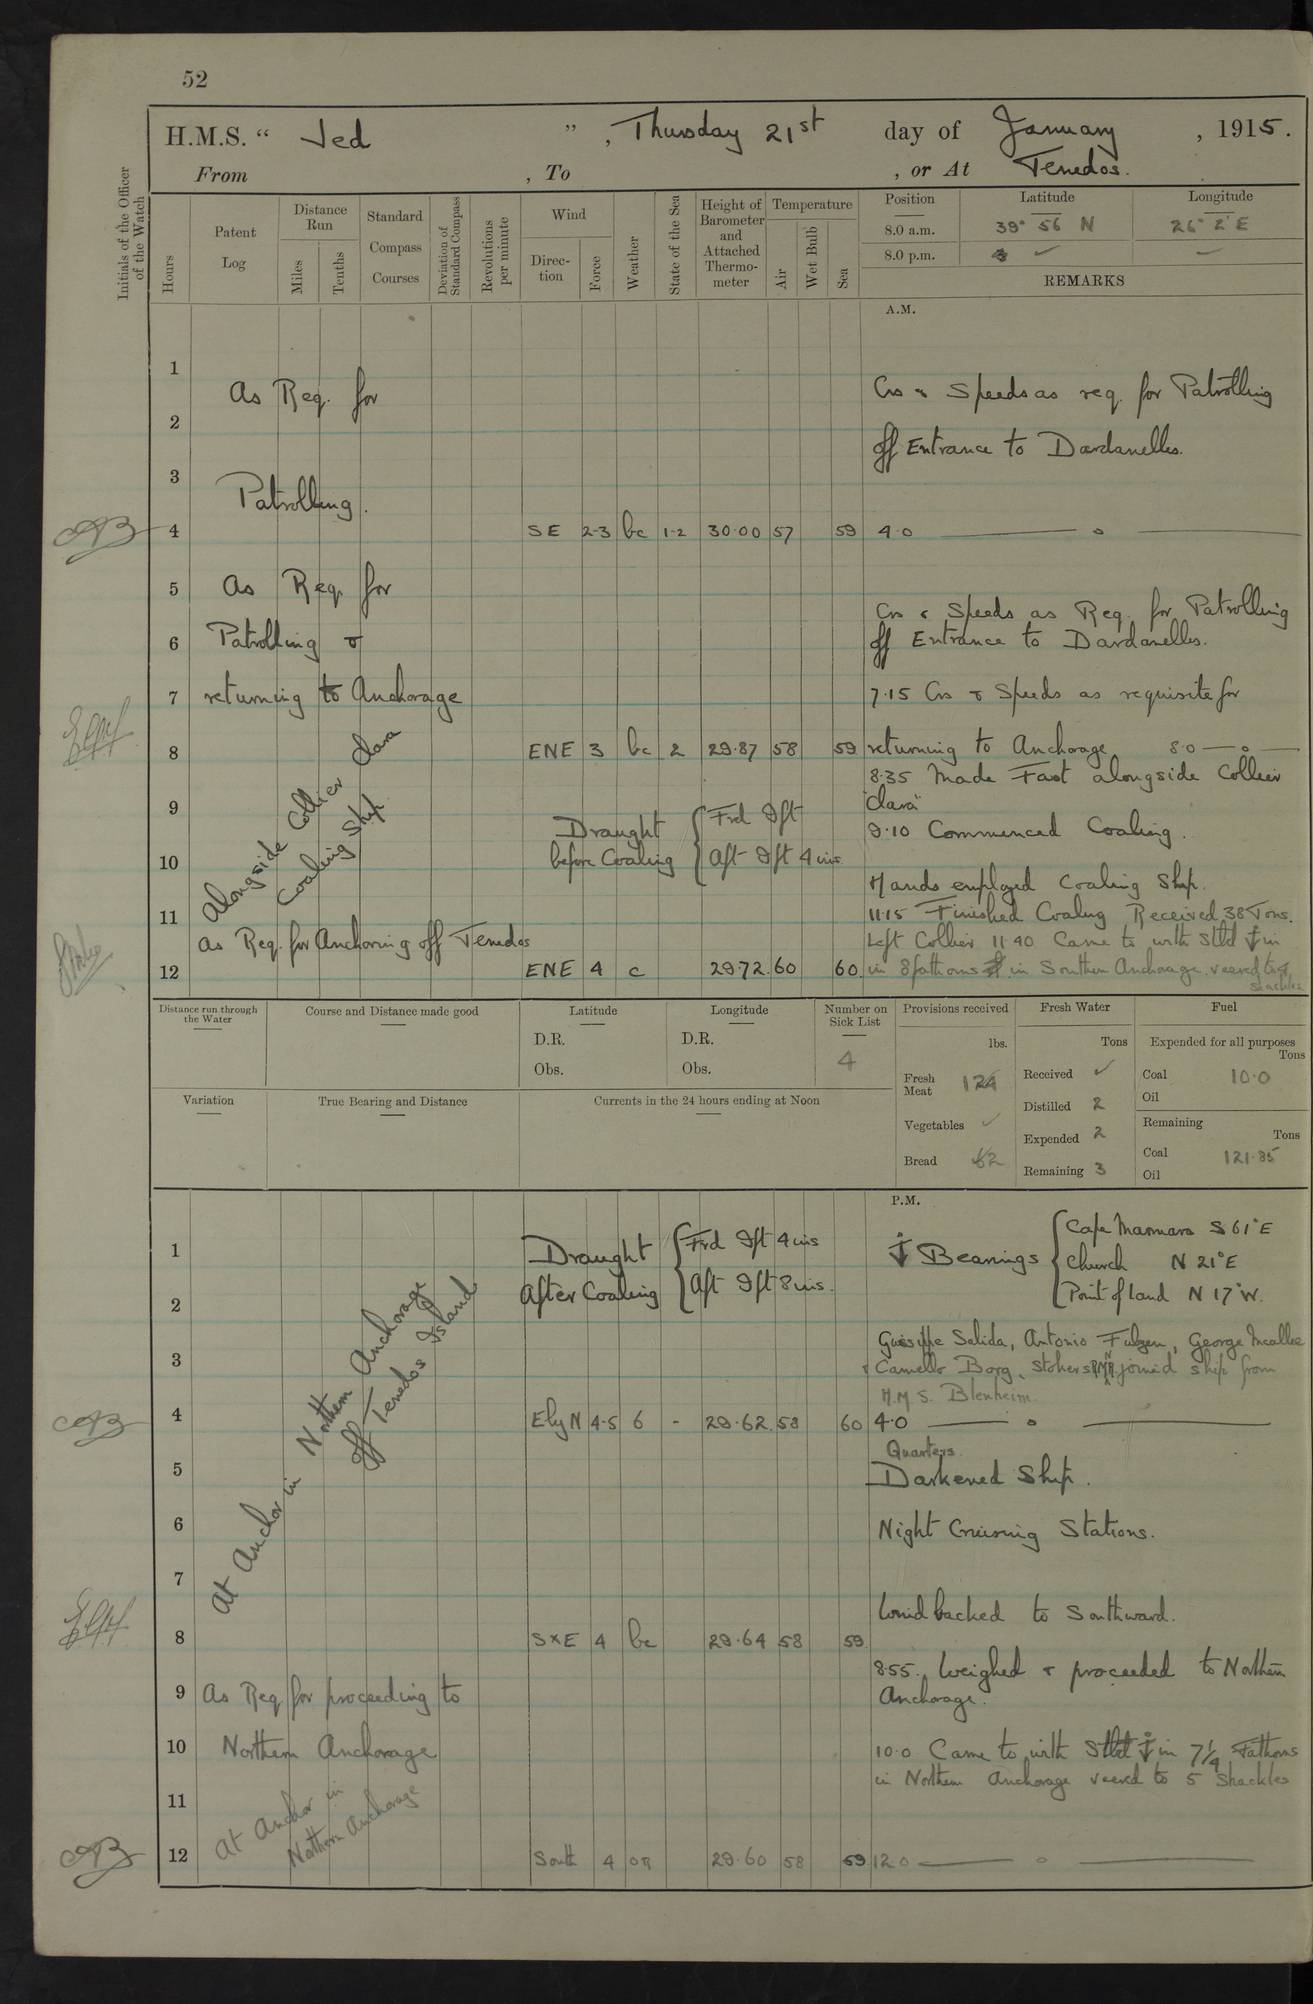 52
H.M.S. “ Jed ”, Thursday 21st day of January, 1915.
From , To , or At Tenedos.
Initials of the Officer of the Watch
Hours
Patent Log
Distance Run
Miles
Tenths
Standard Compass Courses
Deviation of Standard Compass
Revolutions per minute
Wind
Direction
Force
Weather
State of the Sea
Height of Barometer and Attached Thermometer
Temperature
Air
Wet Bulb
Sea
Position Latitude Longitude
8.0 a.m. 39° 56 N 26° 2' E
8.0 p.m. ✓
REMARKS
A.M.
1
As Req. for
Cos & Speeds as req. for Patrolling
2
off Entrance to Dardanelles.
3
Patrolling.
4 SE 2-3 bc 1-2 30.00 57 59 4.0
5 As Req. for
Cos & Speeds as Req. for Patrolling
6 Patrolling & off Entrance to Dardanelles.
7 returning to Anchorage 7.15 Cos & Speeds as requisite for
8 ENE 3 bc 2 29.87 58 59 returning to Anchorage 8.0
8.35 Made Fast alongside Collier
9 "Clara"
Alongside Collier Clara
Coaling Ship
Draught before Coaling { Frd 9ft
Aft 9ft 4ins
9.10 Commenced Coaling.
10
Hands employed Coaling Ship.
11 11.15 Finished Coaling Received 38 Tons.
As Req. for Anchoring off Tenedos Left Collier 11 40 Came to with Stbd in
12 ENE 4 c 29.72 60 60 in 8 fathoms in Southern Anchorage. veered to
shackles
Distance run through the Water
Course and Distance made good
Latitude
D.R.
Obs.
Longitude
D.R.
Obs.
Number on Sick List
4
Provisions received
lbs.
Fresh Meat 124
Vegetables ✓
Bread 62
Fresh Water
Tons
Received ✓
Distilled 2
Expended 2
Remaining 3
Fuel
Expended for all purposes
Tons
Coal 10.0
Oil
Remaining
Tons
Coal 121.85
Oil
Variation
True Bearing and Distance
Currents in the 24 hours ending at Noon
P.M.
1 Draught After Coaling { Frd 9ft 4ins
Aft 9ft 8ins.
Bearings { Cape Marmara S 61° E
Church N 21° E
Point of land N 17° W.
2
Salida, Antonio, George
3 & Camello Borg, Stokers RNR joined ship from
H.M.S. Blenheim
At Anchor in Northern Anchorage
off Tenedos Island
4 E by N 4-5 6 - 29.62 58 60 4.0
Quarters.
5 Darkened Ship.
6 Night Cruising Stations.
7
Wind backed to Southward.
8 SxE 4 bc 29.64 58 59
8.55. Weighed & proceeded to Northern
9 As Req for proceeding to Anchorage.
10 Northern Anchorage 10.0 Came to with Stbd in 7¼ Fathoms
in Northern Anchorage veered to 5 Shackles
11 At Anchor in
Northern Anchorage
12 South 4 or 29.60 58 59 12.0